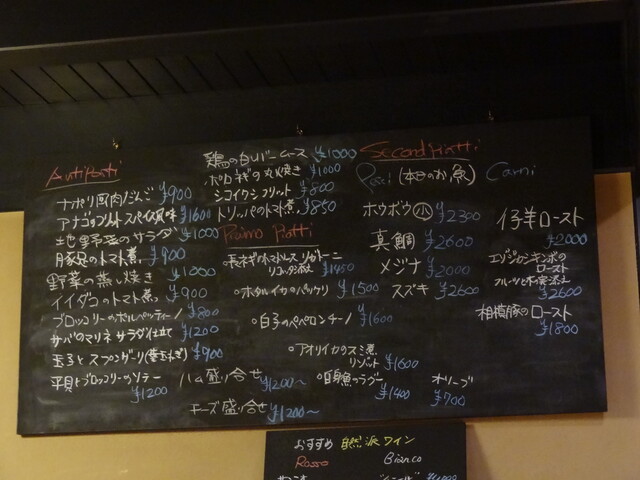 Antipasti
ナポリ風肉だんご ¥900
アナゴのフリット スパイス風味 ¥1600
地野菜のサラダ ¥1000
豚足のトマト煮 ¥900
野菜の蒸し焼き ¥1000
イイダコのトマト煮 ¥900
ブロッコリーのポルペッティーノ ¥800
サバのマリネ サラダ仕立て ¥1200
玉子とスプンダーリ(葉玉ねぎ) ¥900
平貝とブロッコリーのソテー ¥1200
鶏の白レバームース ¥1000
ポロネギの丸焼き ¥1000
シコイワシフリット ¥800
トリッパのトマト煮 ¥850
Primo Piatti
長ネギのトマトソース リガトーニ
リコッタ添え ¥1450
ホタルイカのパッケリ ¥1500
白子のペペロンチーノ ¥1600
アオリイカのスミ煮
リゾット ¥1600
白身魚のラグー ¥1400
ハム盛り合せ ¥1200~
チーズ盛り合せ ¥1200~
Secondi Piatti
Pesci (本日のお魚)
ホウボウ 小 ¥2300
真鯛 ¥2600
メジナ ¥2000
スズキ ¥2600
オリーブ ¥700
Carni
仔羊ロースト ¥2000
ロースト
フルーツと木の実添え ¥2600
相模豚のロースト ¥1800
おすすめ 自然派ワイン
Rosso Bianco